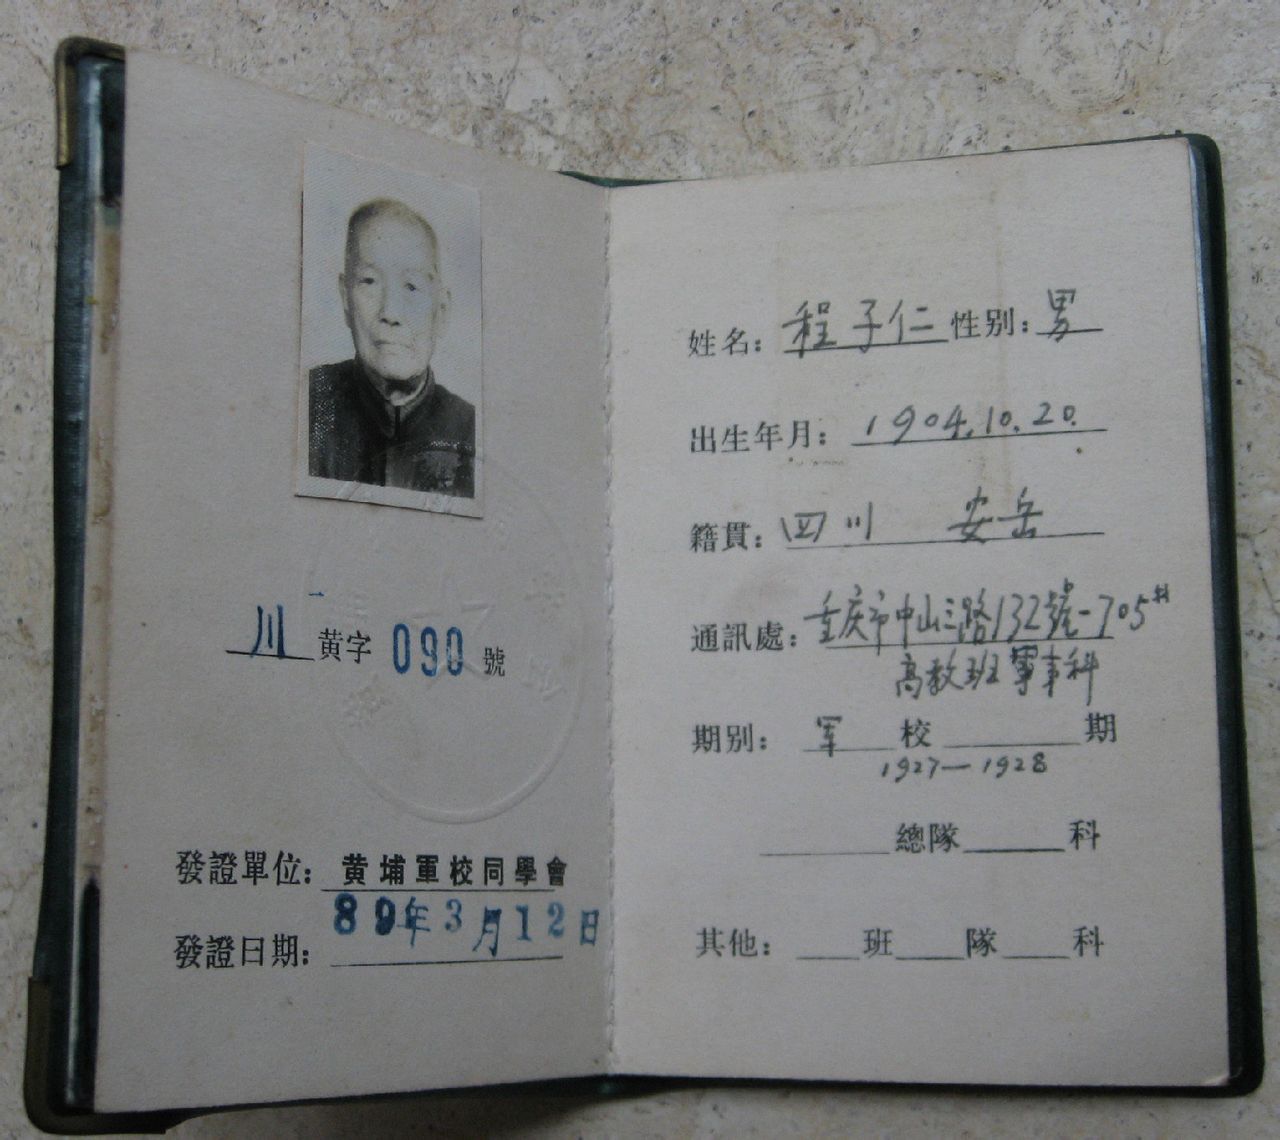 川黄字090號
發證單位：黄埔軍校同學會
發證日期：89年3月12日
姓名：程子仁性别：男
出生年月：1904.10.20.
籍貫：四川 安岳
通訊處：重庆市中山三路132號-705#
高教班軍事科
期别：軍校 期
1927-1928
總隊 科
其他： 班 隊 科